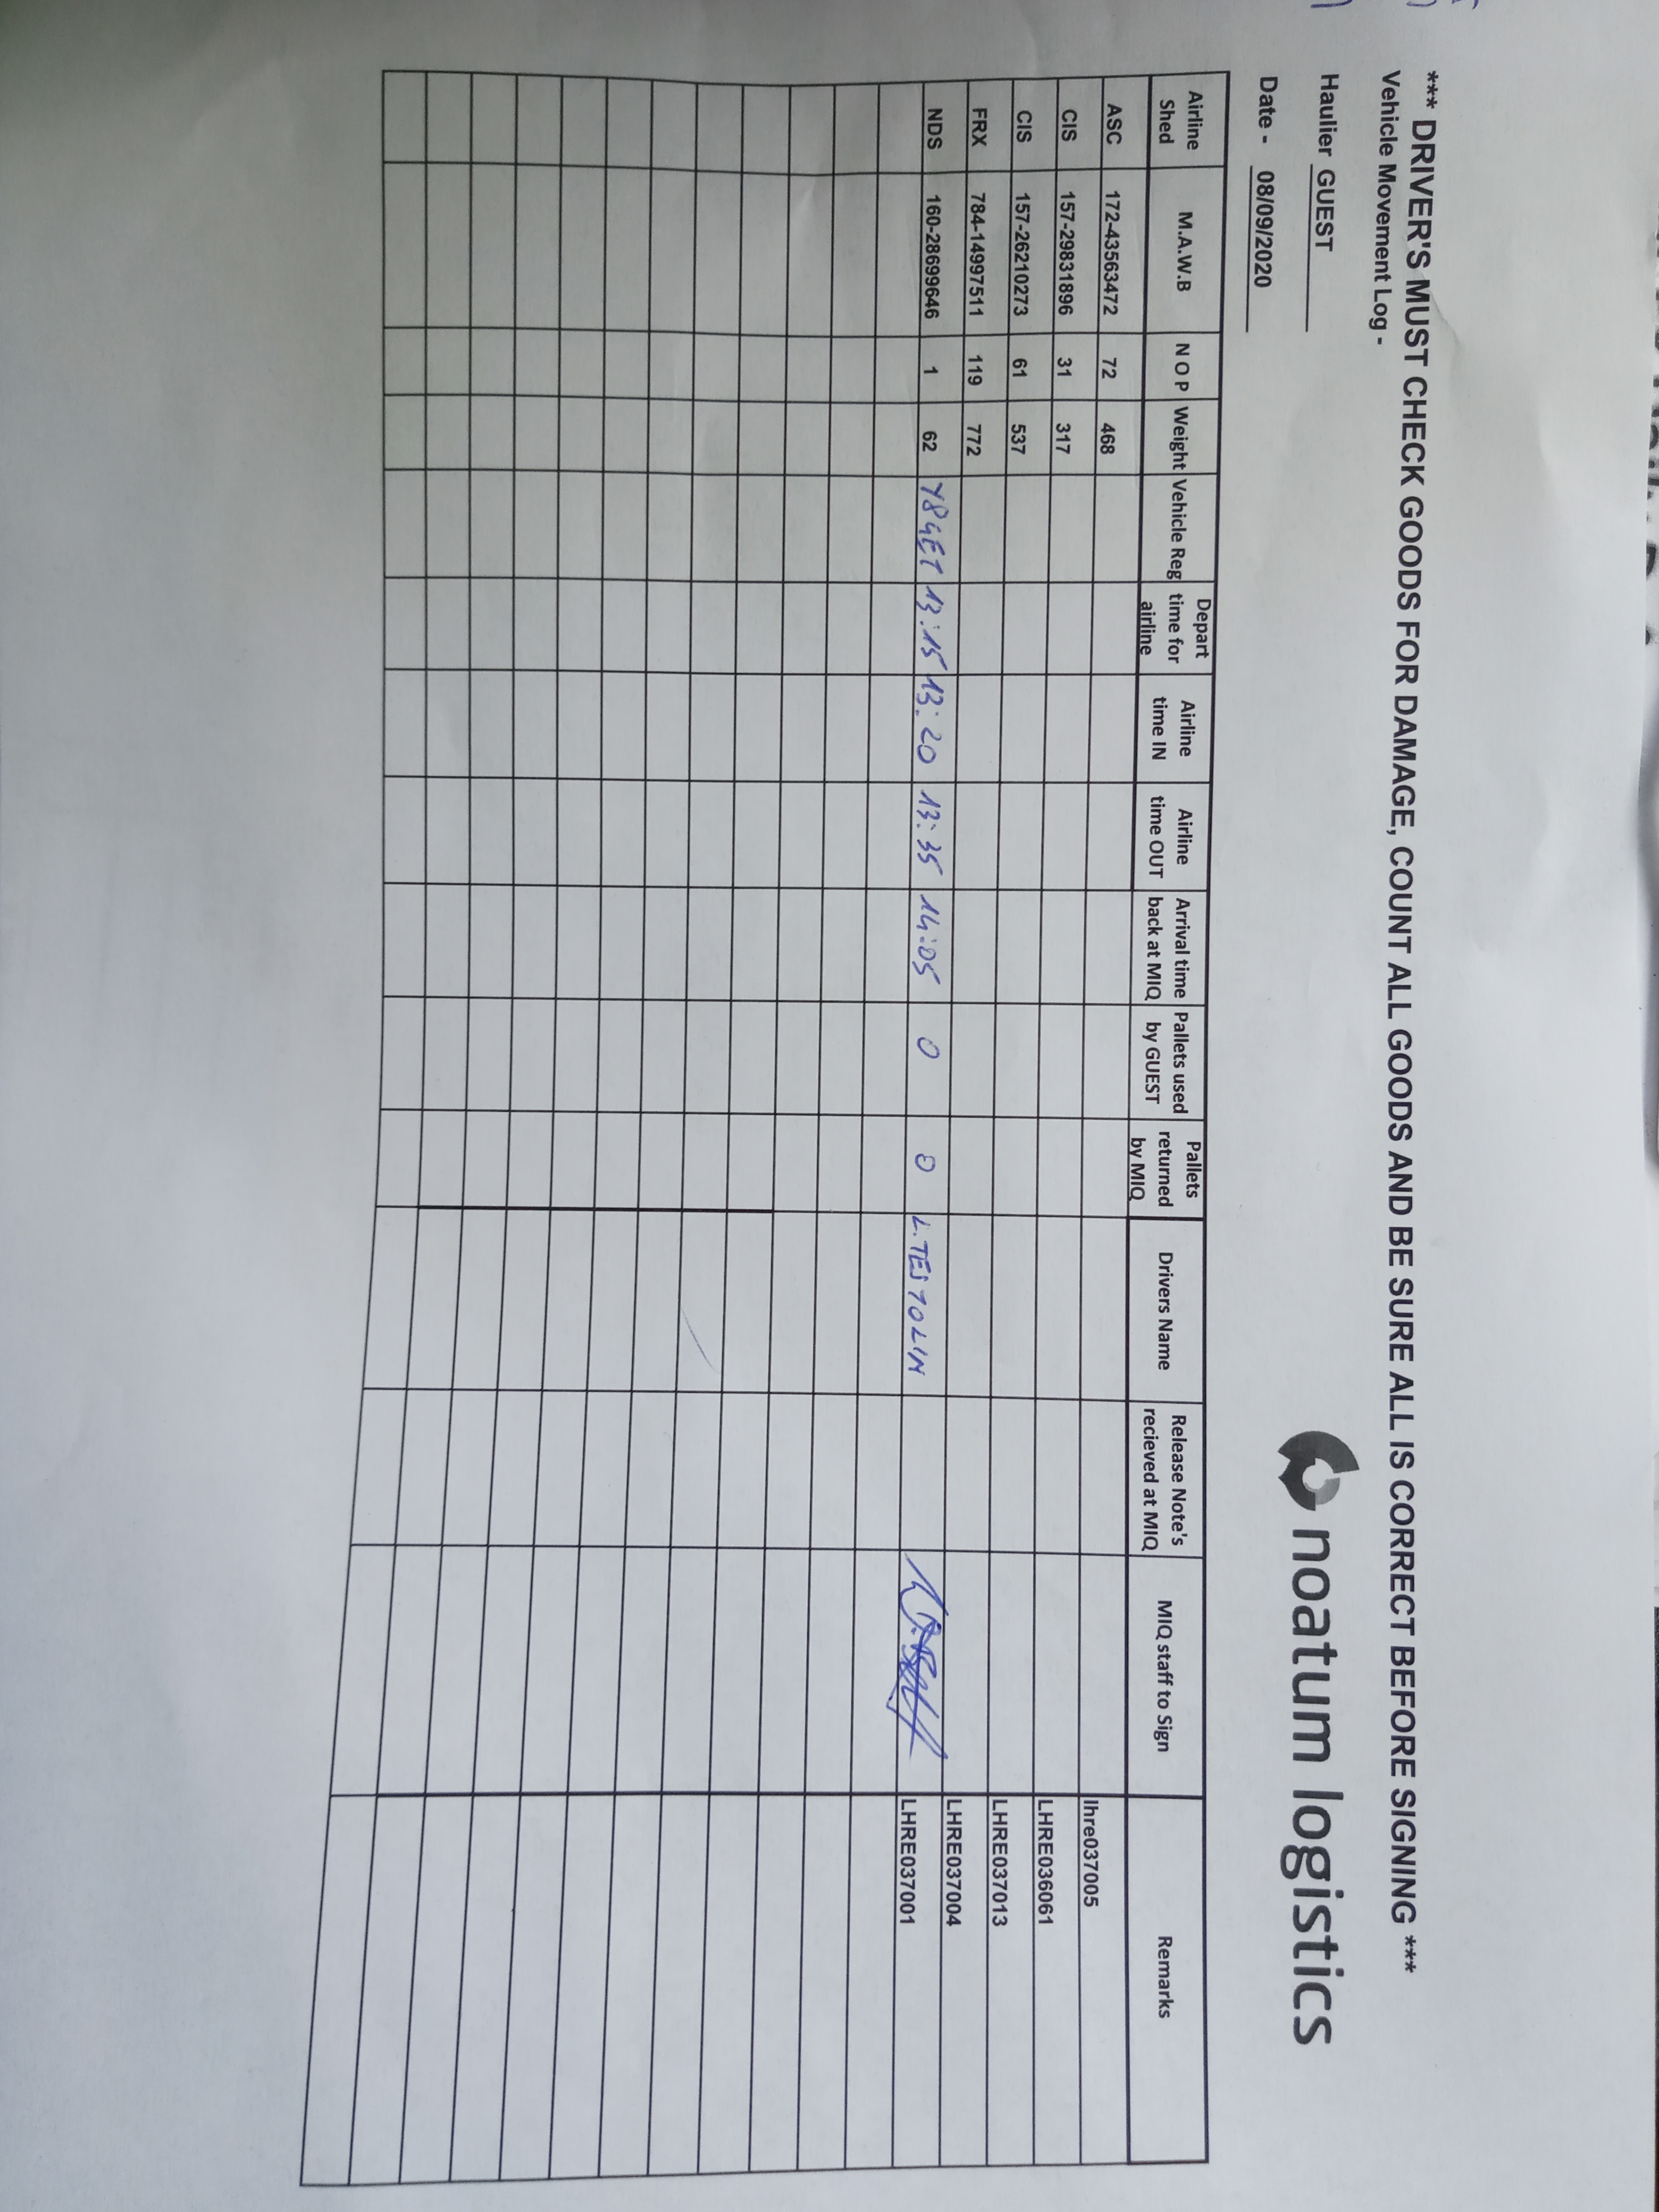 *** DRIVER'S MUST CHECK GOODS FOR DAMAGE, COUNT ALL GOODS AND BE SURE ALL IS CORRECT BEFORE SIGNING ***
Vehicle Movement Log -
Haulier GUEST
noatum logistics
Date - 08/09/2020
Airline Shed M.A.W.B N O P Weight Vehicle Reg Depart time for airline Airline time IN Airline time OUT Arrival time back at MIQ Pallets used by GUEST Pallets returned by MIQ Drivers Name Release Note's recieved at MIQ MIQ staff to Sign Remarks
ASC 172-43563472 72 468 lhre037005
CIS 157-29831896 31 317 LHRE036061
CIS 157-26210273 61 537 LHRE037013
FRX 784-14997511 119 772 LHRE037004
NDS 160-28699646 1 62 Y8GET 13:15 13:20 13:35 14:05 0 0 L.TESTOLIN LHRE037001